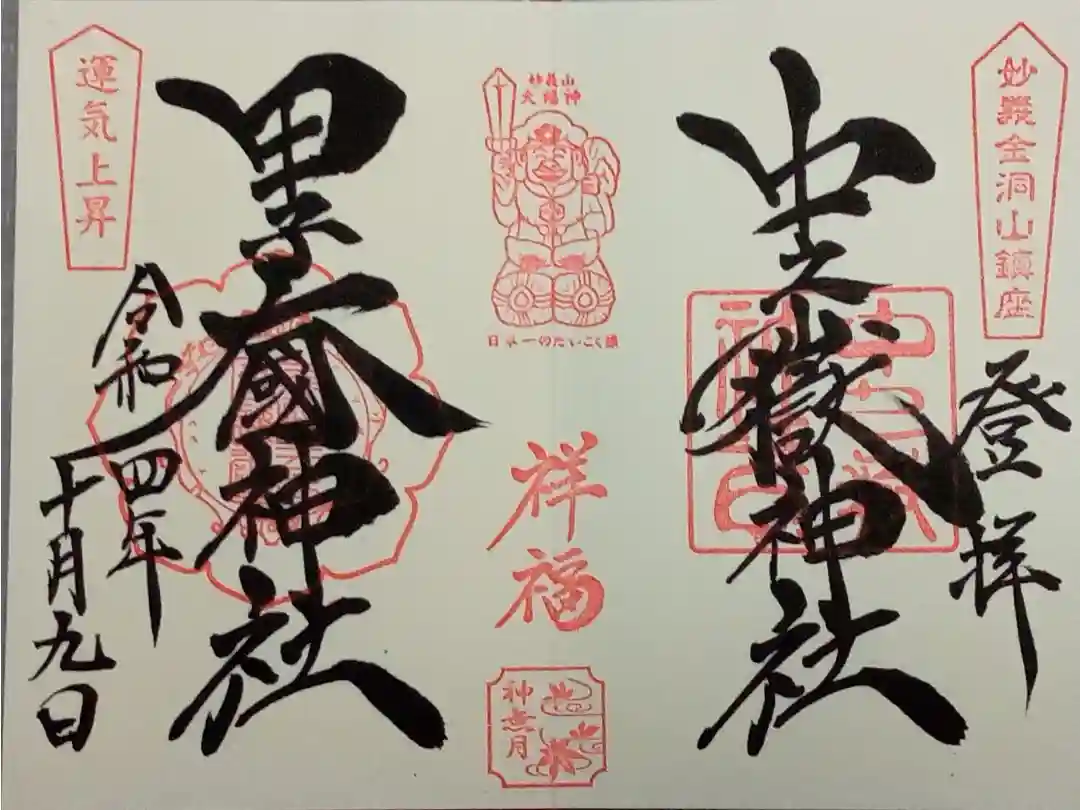 妙義金洞山鎮座
登拝
中之嶽神社
妙義山
大福神
日本一のだいこく様
祥福
神無月
甲子大國神社
運気上昇
令和四年
十月九日